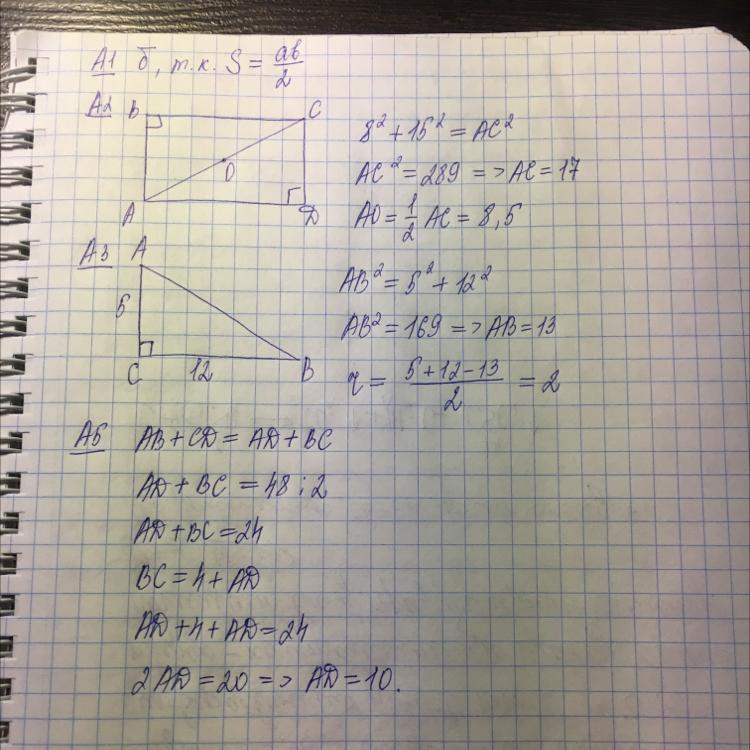 А1 б, т.к. S = ab/2
А2 B C
O
A D
8² + 15² = AC²
AC² = 289 => AC = 17
AO = 1/2 AC = 8,5
А3 A
5
C 12 B
AB² = 5² + 12²
AB² = 169 => AB = 13
r = (5+12-13)/2 = 2
А5 AB + CD = AD + BC
AD + BC = 48 : 2
AD + BC = 24
BC = 4 + AD
AD + 4 + AD = 24
2AD = 20 => AD = 10.